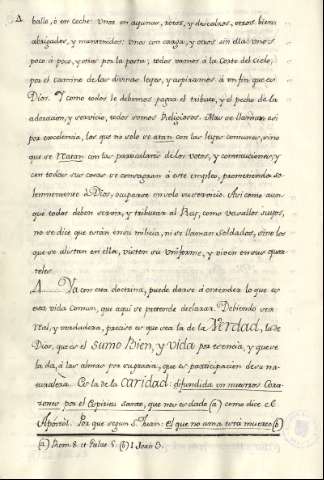 ballo, ò en coche: Unos en ayunas, rotos, y descalzos, otros bien
abrigados, y mantenidos: unos con carga, y otros sin ella: unos
poco à poco, y otros por la posta; todos vamos à la Corte del Cielo,
por el camino de las divinas leyes, y aspiramos à un fin que es
Dios. Y como todos le debemos pagar el tributo, y el pecho de la
adoracion, y servicio, todos somos Religiosos. Mas se llaman asi
por excelencia, los que no solo se atan con las leyes comunes, sino
que se Reatan con las particulares de los votos, y constituciones, y
con todas sus cosas se consagran à este empleo, prometiendo so-
lemnemente à Dios, ocuparse en solo su servicio. Asi como aun-
que todos deben servir, y tributar al Rey, como vasallos suyos,
no se dice que están en su milicia, ni se llaman soldados, sino los
que se alistan en ella, visten su Uniforme, y viven en sus quar-
teles.
4 Ya con esta doctrina, puede darse à entender lo que es
esta vida comun, que aqui se pretende declarar. Debiendo ser
real, y verdadera, parece es que sea la de la Verdad, la de
Dios, que es el sumo Bien, y vida por esencia, y que se
la dá, à las almas por su gracia, que es participacion de su na-
turaleza. Es la de la caridad: difundida en nuestros Cora-
zones por el Espiritu santo, que nos es dado (a) como dice el
Apostol. Por que segun S. Juan: El que no ama está muerto (b)
(a) Rom. 8. et Galat. 5. (b) 1 Joan 3.